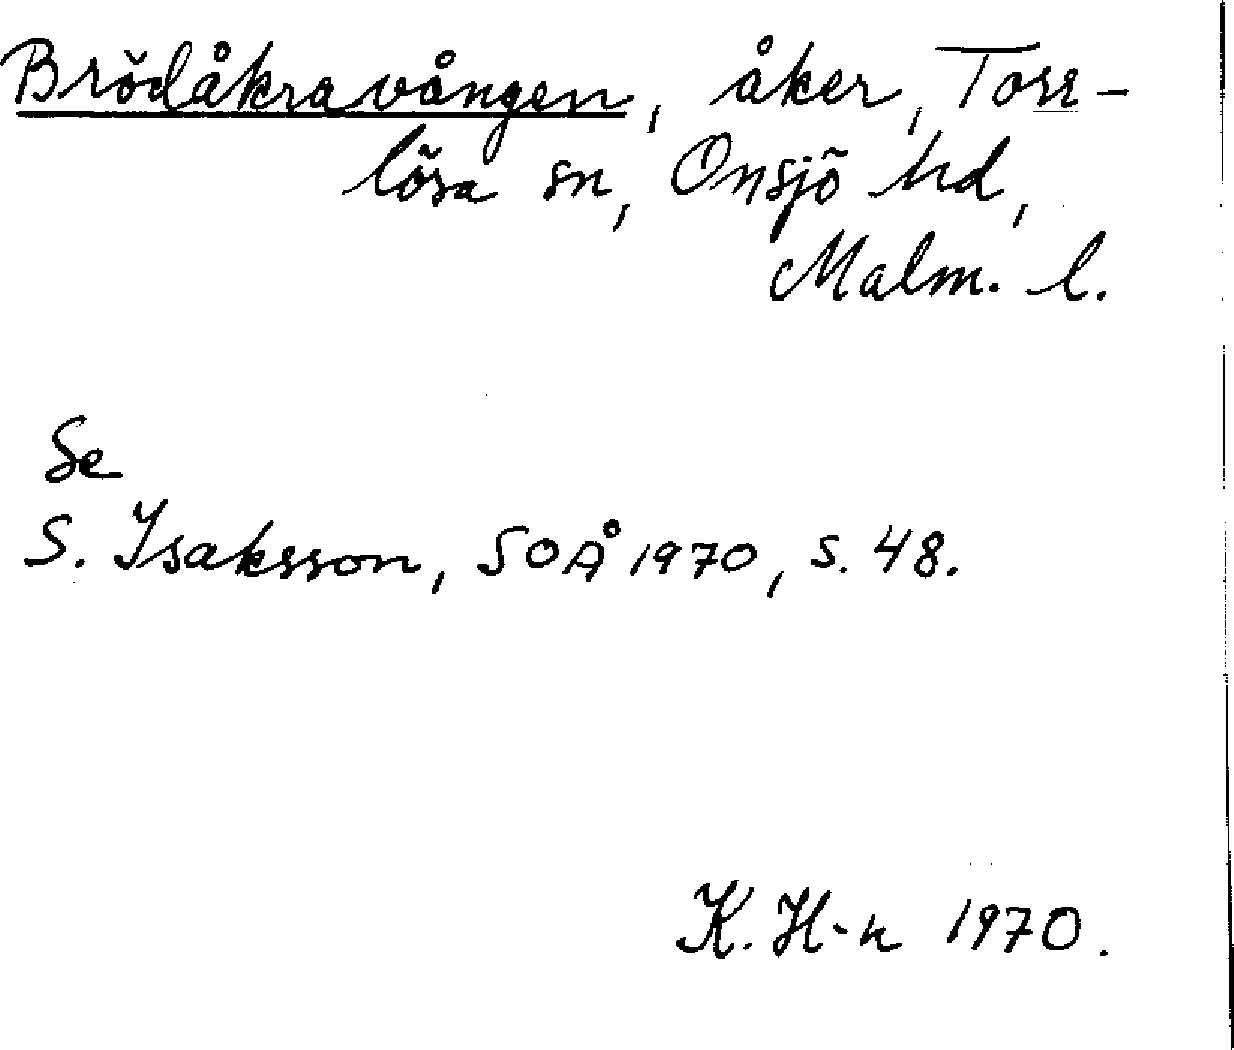 Brödåkravången, åker, Torr-
lösa sn, Onsjö hd,
Malm. l.
Se
S. Isaksson, SOÅ 1970, s. 48.
K. H-n 1970.